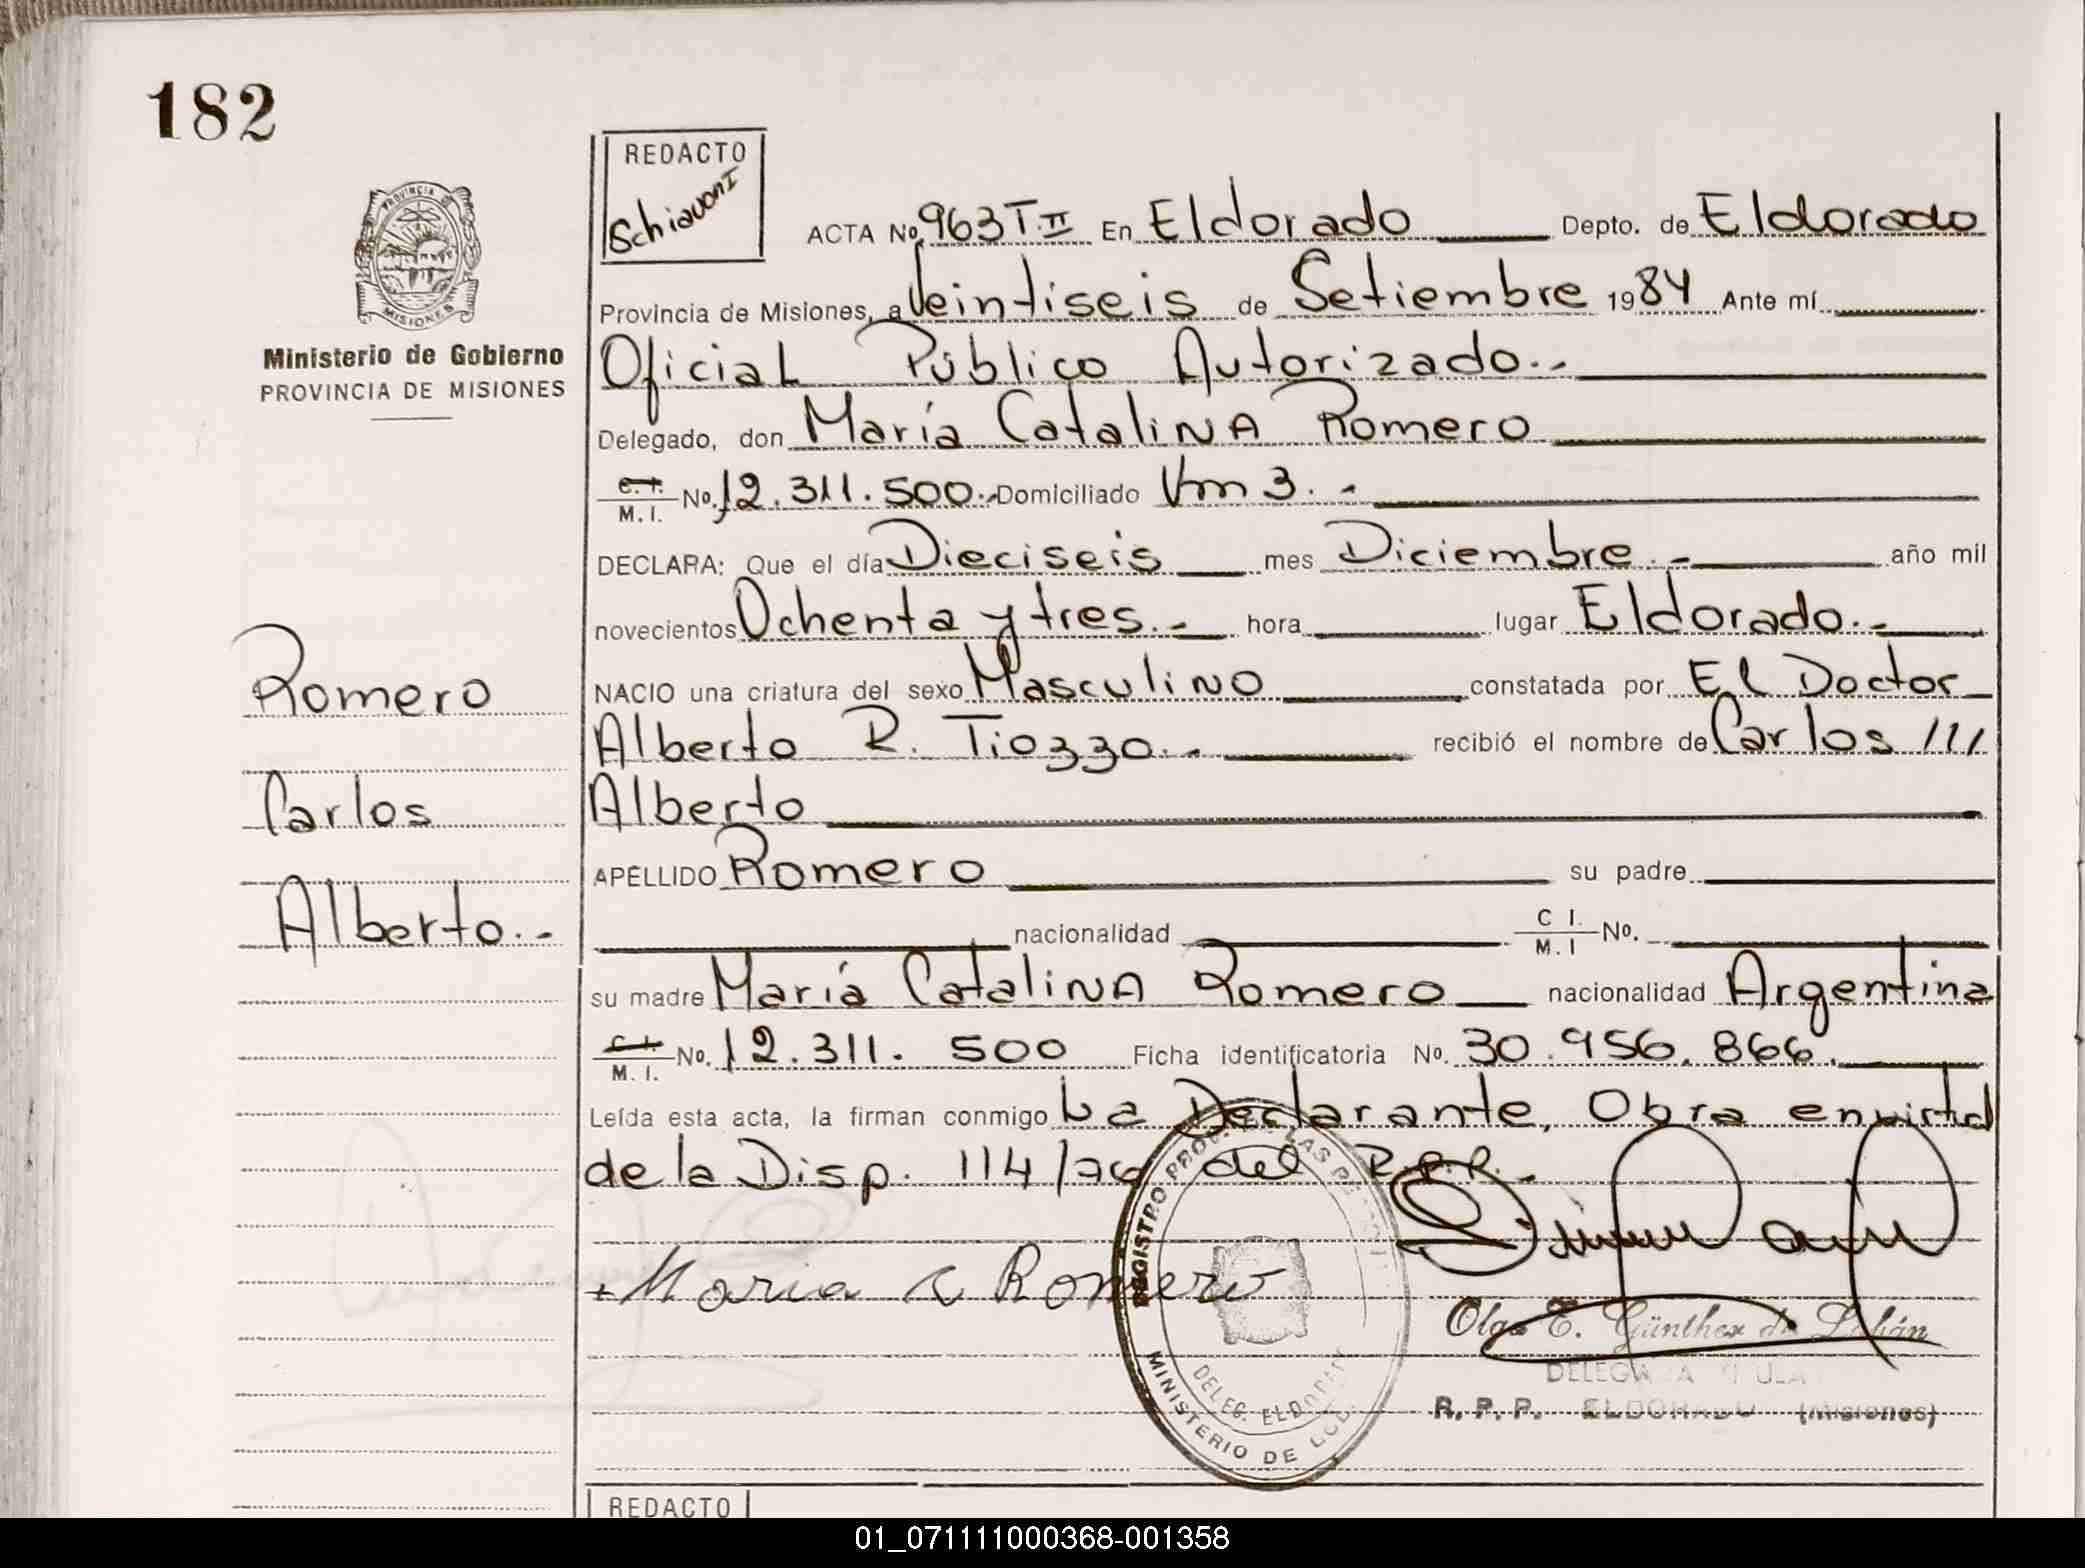 182
REDACTO
Schiavoni
ACTA No. 963 T. II En Eldorado Depto. de Eldorado
PROVINCIA
MISIONES
Provincia de Misiones, a Veintiseis de Setiembre 1984 Ante mí
Ministerio de Gobierno
PROVINCIA DE MISIONES
Oficial Público Autorizado.-
Delegado, don María Catalina Romero
C. I.
M. I. No. 12.311.500.- Domiciliado Km 3.-
DECLARA: Que el día Dieciseis mes Diciembre.- año mil
novecientos Ochenta y tres.- hora lugar Eldorado.-
Romero
NACIO una criatura del sexo Masculino constatada por El Doctor
Alberto R. Tiozzo.- recibió el nombre de Carlos ///
Carlos
Alberto
APELLIDO Romero su padre
Alberto.-
nacionalidad C I. M. I No.
su madre María Catalina Romero nacionalidad Argentina
C. I.
M. I. No. 12.311.500 Ficha identificatoria No. 30.956.866.
Leída esta acta, la firman conmigo La Declarante, Obra en virtud
de la Disp. 114/76 del R.P.P.-
Maria C Romero
REGISTRO PROV. DE LAS PERSONAS
DELEG. ELDORADO
MINISTERIO DE GOB.
Olga E. Günther de
DELEGADA TITULAR
R. P. P. ELDORADO (Misiones)
REDACTO
01_071111000368-001358